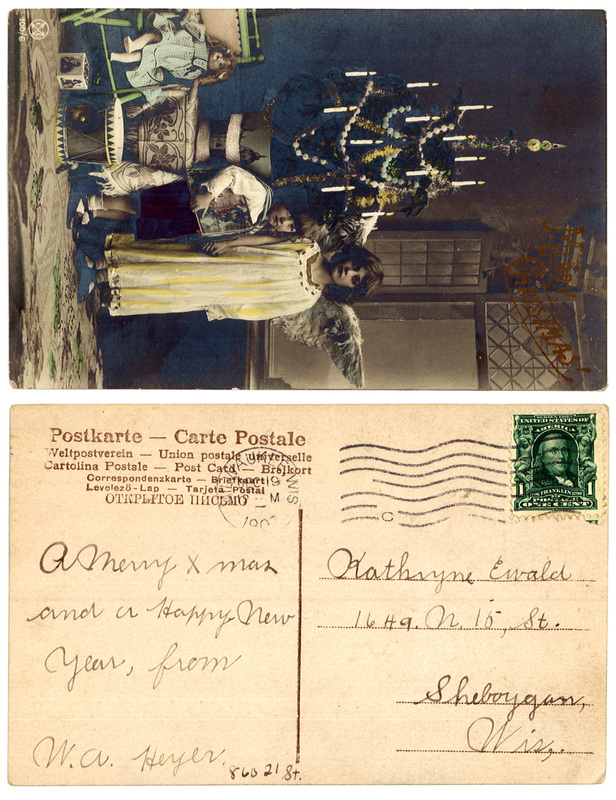 Merry
Christmas
Postkarte — Carte Postale
Weltpostverein — Union postale universelle
Cartolina Postale — Post Card — Brefkort
Correspondenzkarte — Briefkaart
Levelező-Lap — Tarjeta Postal
ОТКРЫТОЕ ПИСЬМО
WIS
SERIES 1902
UNITED STATES OF
AMERICA
FRANKLIN
POSTAGE
1 ONE CENT 1
A Merry Xmas
and a Happy New
Year, from
W. A. Heyer.
860 21 St.
Kathryne Ewald
1649. N. 15, St.
Sheboygan,
Wis,.